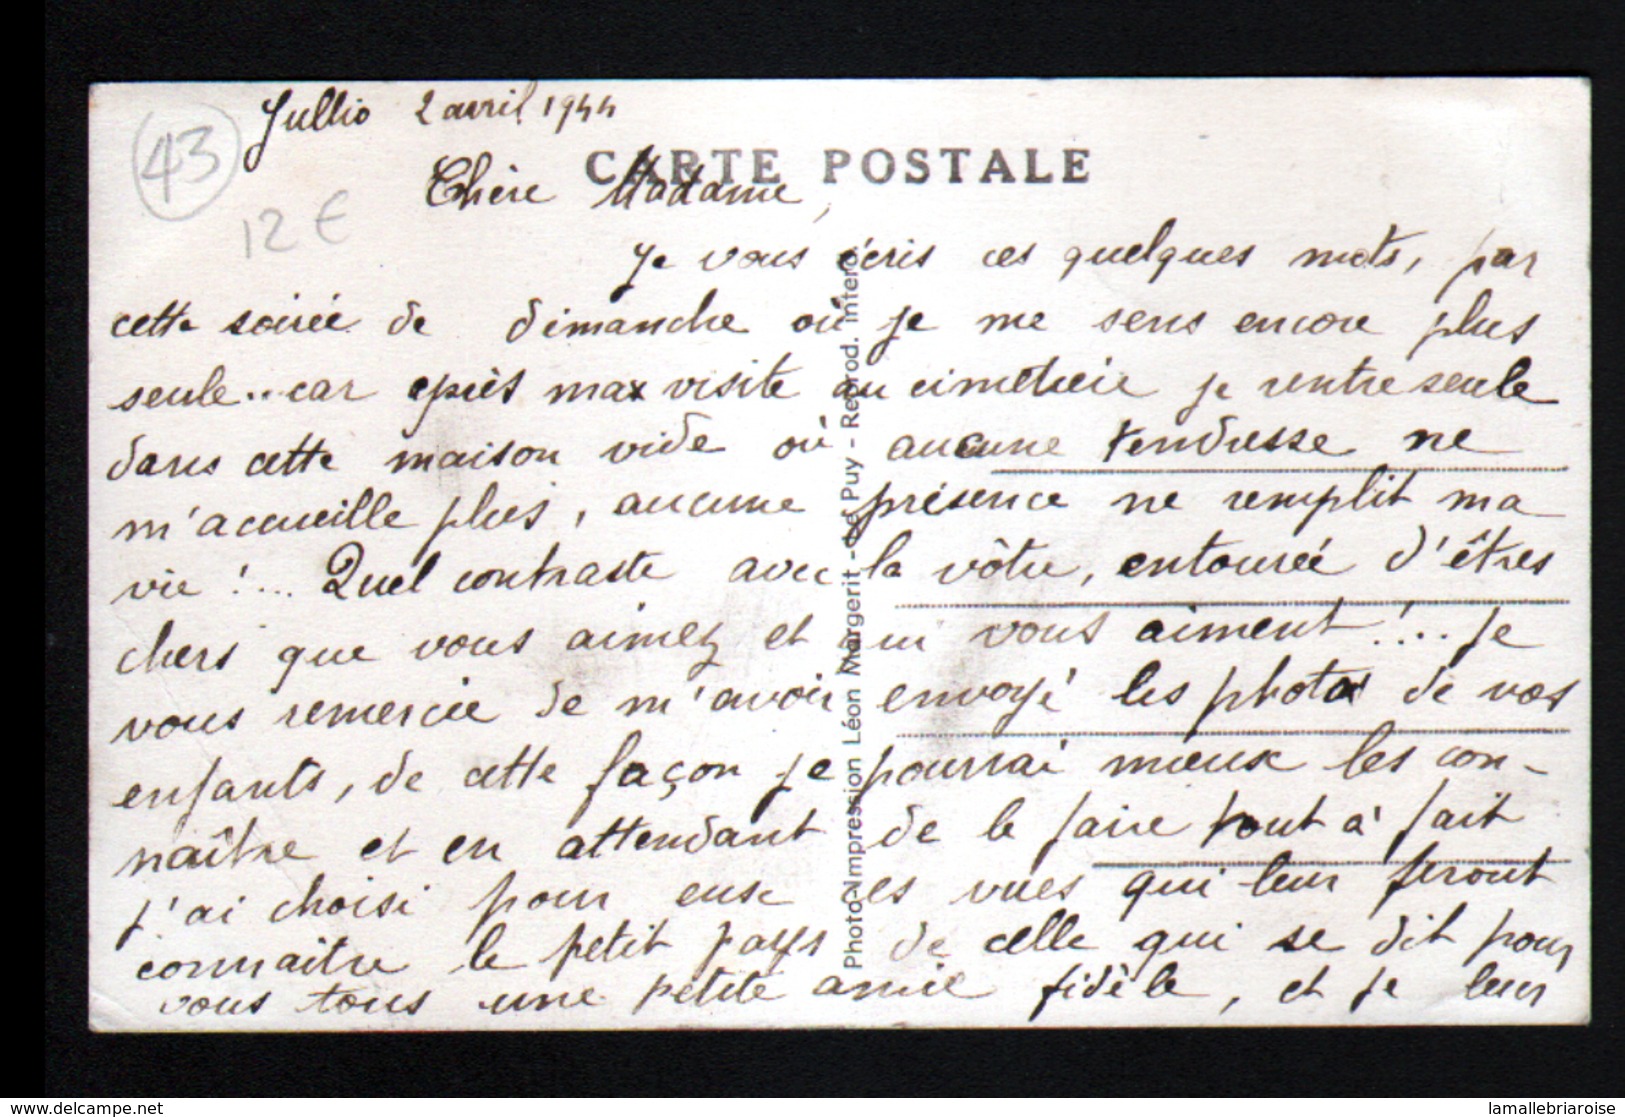 43
12 €
Jullio 2 avril 1944
CARTE POSTALE
Chère Madame,
Je vous écris ces quelques mots, par
cette soirée de dimanche où je me sens encore plus
seule.. car après ma visite au cimetière je rentre seule
dans cette maison vide où aucune tendresse ne
m'accueille plus, aucune présence ne remplit ma
vie !... Quel contraste avec la vôtre, entourée d'êtres
chers que vous aimez et qui vous aiment !... Je
vous remercie de m'avoir envoyé les photos de vos
enfants, de cette façon je pourrai mieux les con-
naître et en attendant de le faire tout à fait
j'ai choisi pour eux ces vues qui leur feront
connaitre le petit pays de celle qui se dit pour
vous tous une petite amie fidèle, et je leur
Photo-Impression Léon Margerit - Le Puy - Reprod. interd.
www.delcampe.net
lamallebriaroise